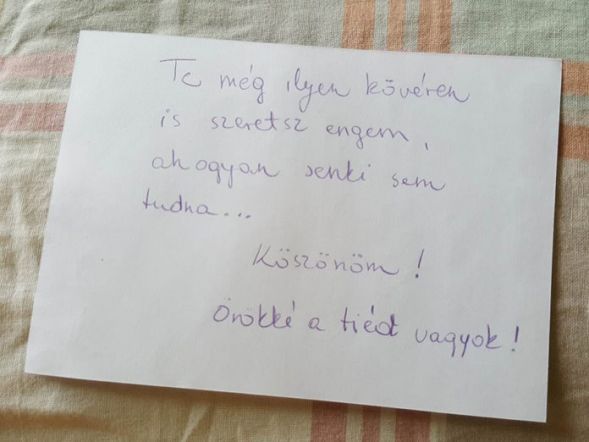 Te még ilyen kövéren
is szeretsz engem,
ahogyan senki sem
tudna...
Köszönöm!
Örökké a tiéd vagyok!